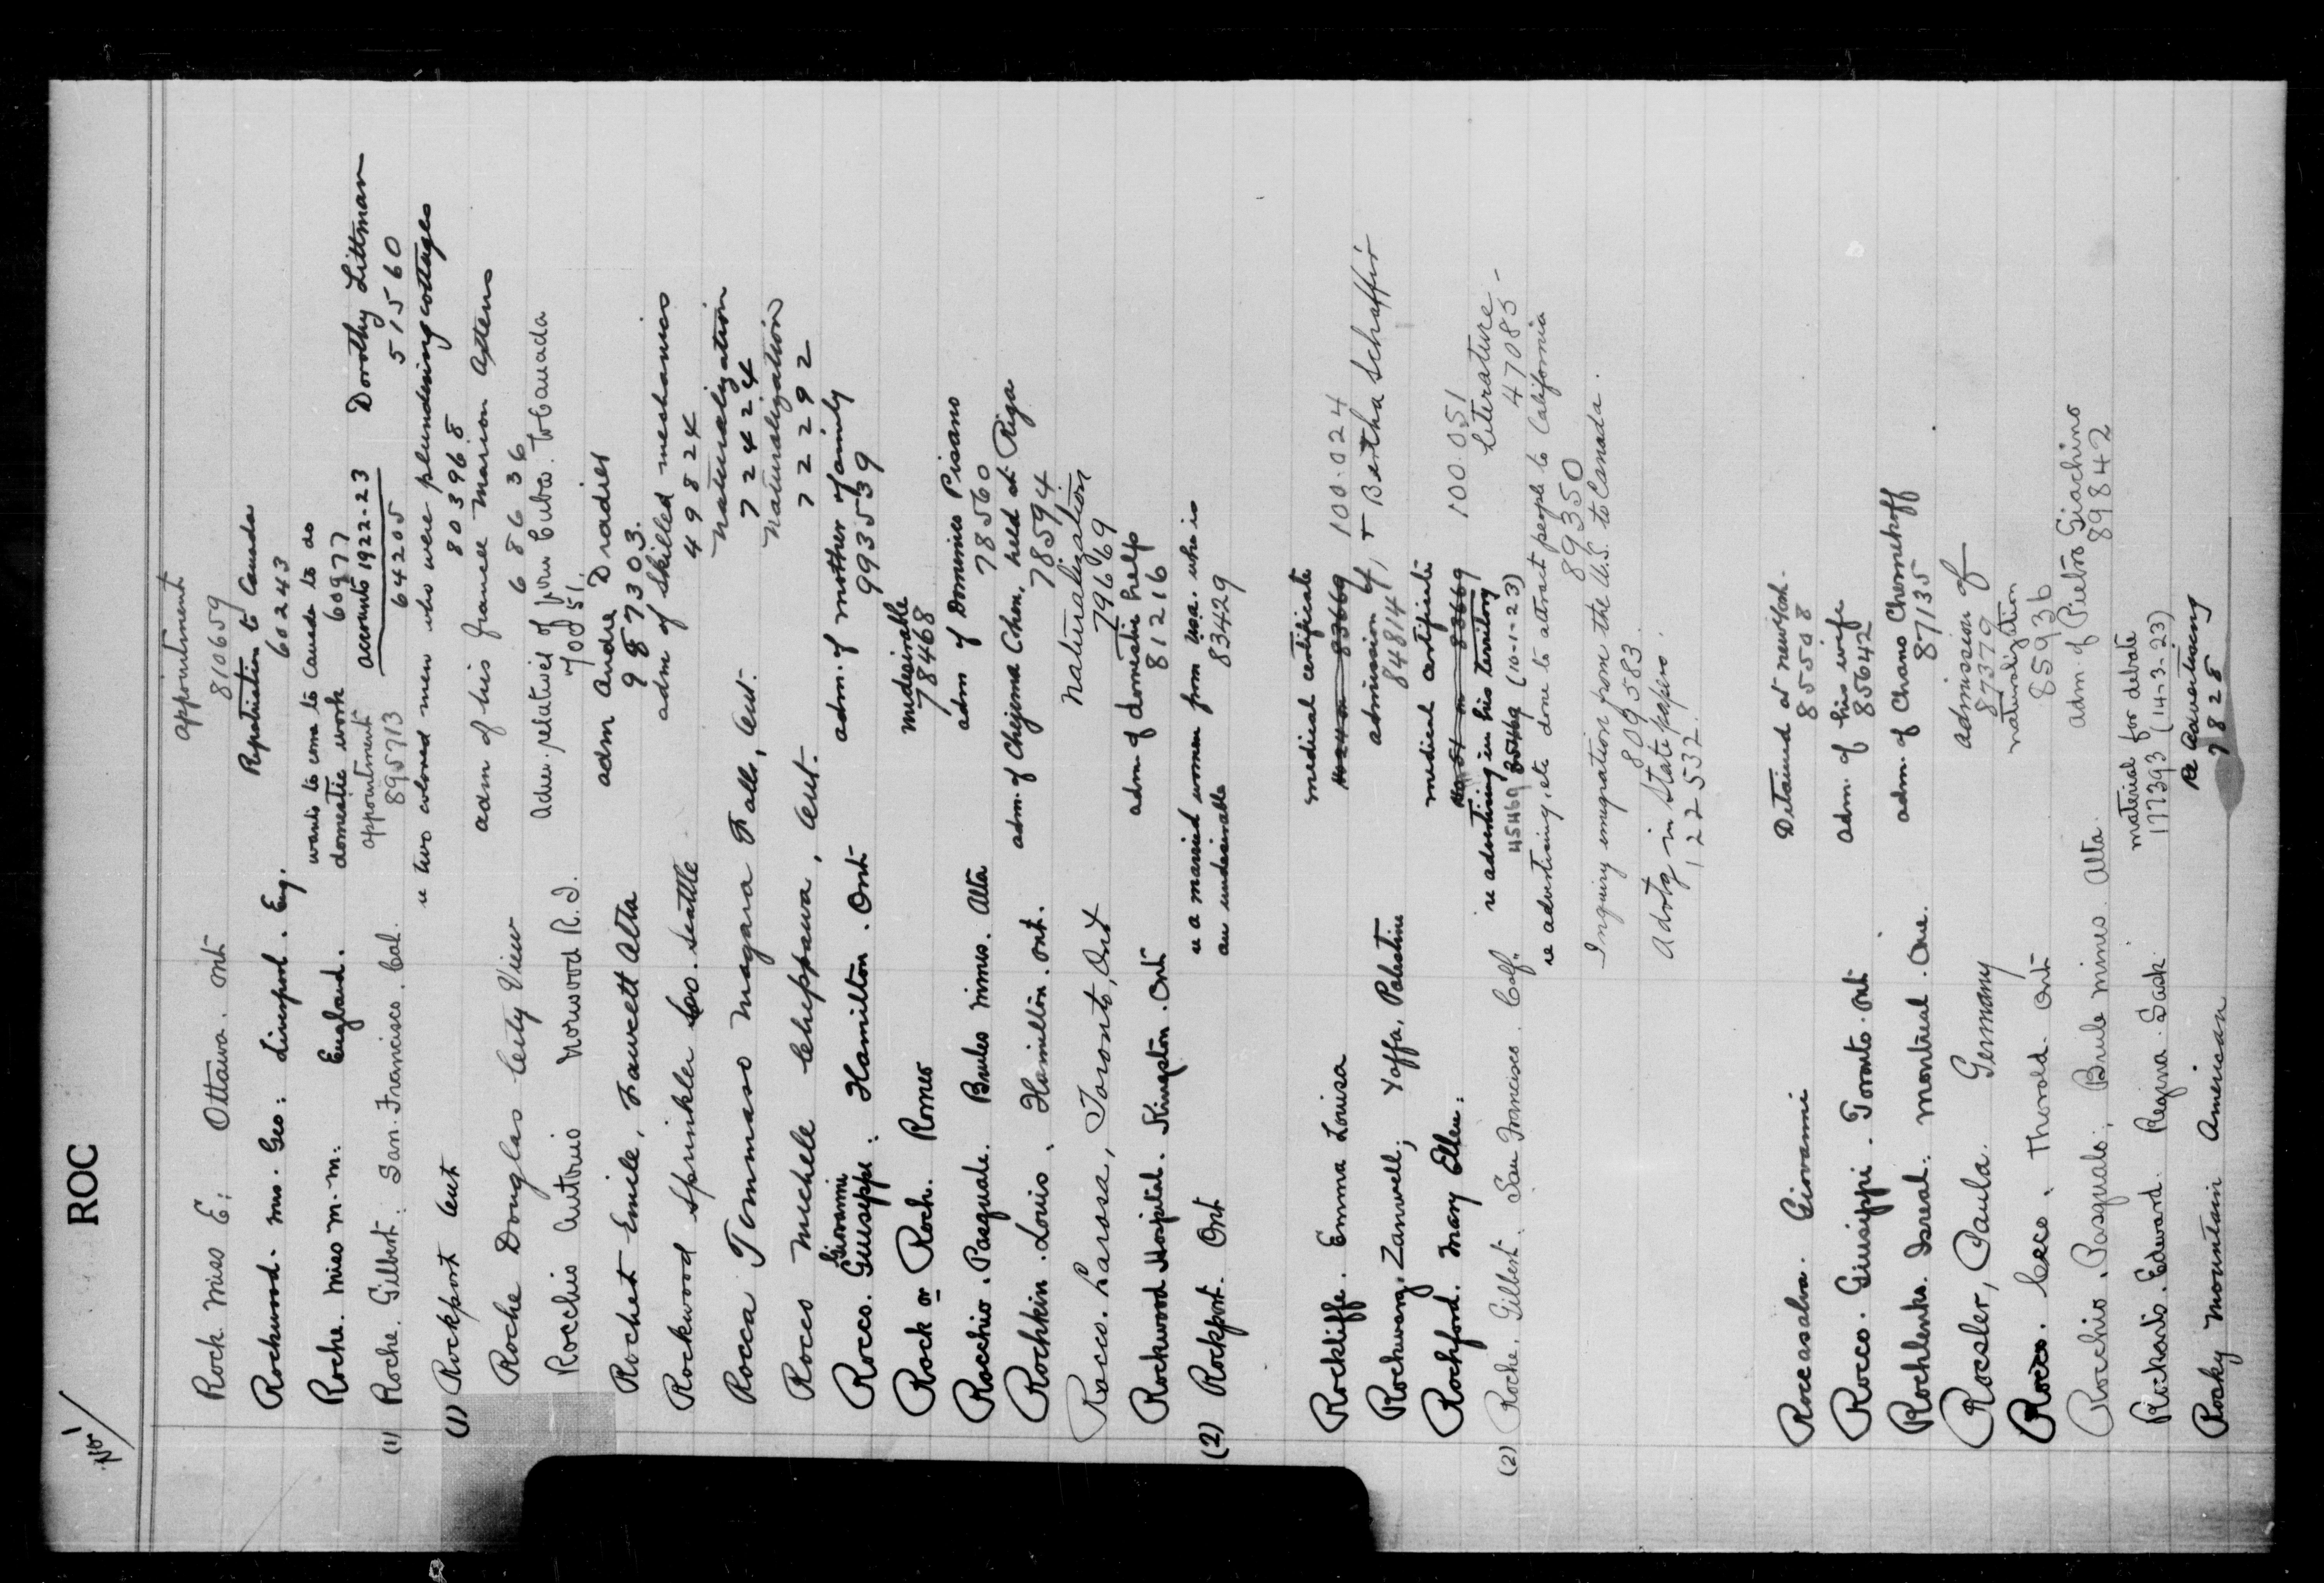 No 1
ROC
Rock. Miss E; Ottawa. Ont appointment
810659
Rockwood. Mrs. Geo: Liverpool. Eng. Repatriation to Canada
60243
Roche. Miss M. M. England. wants to come to Canada to do
domestic work 60977
(1) Roche. Gilbert. San. Francisco. Cal. appointment accounts 1922-23 Dorothy Littman
895713 64205 51560
(1) Rockport Ont re two colored men who were plundering cottages
803968
Roche Douglas City View adm of his fiancee Marion
68636
Rocchio Antonio Norwood R.I. adm. relatives from Cuba to Canada
70051
Rochet Emile, Fawcett Alta adm Andre Dradies
987303.
Rockwood Sprinkler Co. Seattle adm of skilled mechanics
49824
Rocca Tommaso Niagara Falls, Ont. Naturalization
72424
Rocco Michele Chippawa, Ont. Naturalization
72292
Giovanni
Rocco. Guiseppe: Hamilton. Ont adm. of mother & family
993539
Rock or Roch. Romeo undesirable
78468
Rocchio. Pasquale. Brules Mines. Alta adm of Dominics Pisano
78560
Rochkin. Louis. Hamilton. Ont. adm. of Chejema Cohen, held at Riga
78594
Rocco. Larosa, Toronto, Ont Naturalization
79669
Rockwood Hospital. Kingston. Ont adm. of domestic help
81216
(2) Rockport. Ont re a married women from U.S.A. who is
an undesirable 83429
Rockliffe. Emma Louisa medical certificate
83669 100.024
Rockwarg. Zanwell; Yaffa, Palestine admission of, + Bertha Schaffir
84814
Rochford. Mary Ellen. medical certificate
83669 100.051
(2) Roche. Gilbert. San Francisco. Calf. re advertising in his territory literature -
45469 (10-1-23) 47085
re advertising, etc done to attract people to California
89350
Inquiry emigration from the U.S. to Canada.
809583
Advtg in State papers.
122532.
Roccasalva. Giovanni Detained at New York.
85508
Rocco. Giusippi. Toronto. Ont adm. of his wife
85642
Rochlenko. Isreal. Montreal. Que. adm. of Chano Chomehoff
87135
Rocsler, Paula. Germany admission of
87379
Rocco. Cecco. Thorold. Ont naturalization
85936
Rocchio. Pasquale; Brule Mines. Alta. adm. of Pietro Giachino
89842
Rickards. Edward. Regina. Sask. material for debate
177393 (14-3-23)
Rocky Mountain American Re Advertising
9828